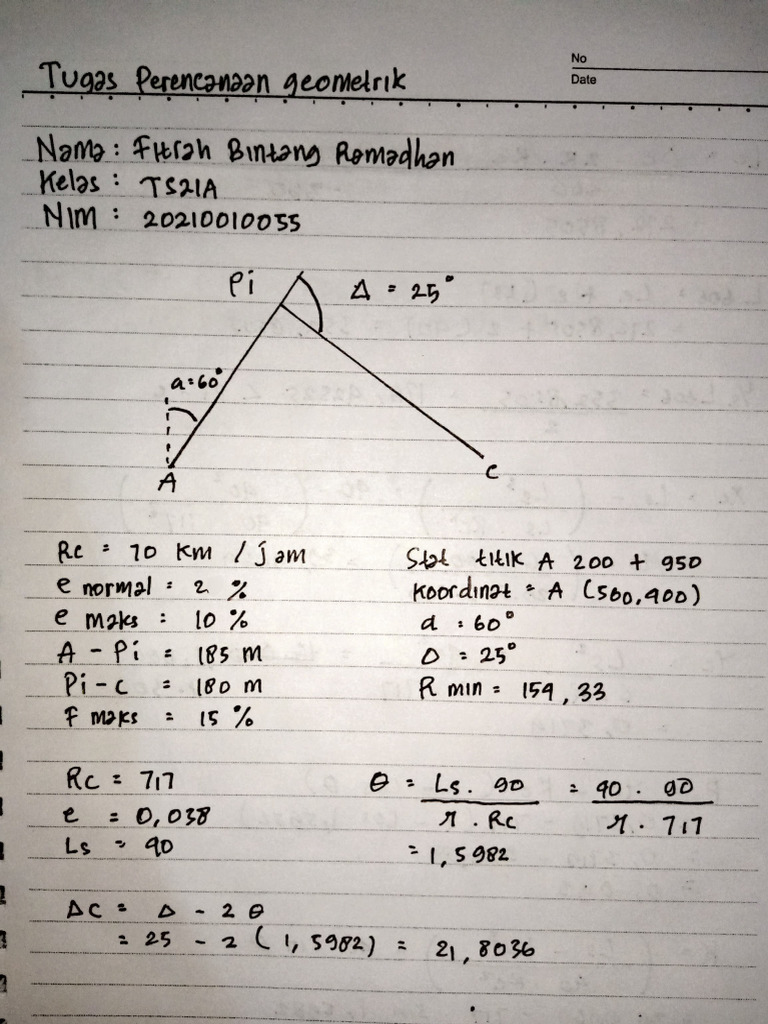 No
Date
Tugas Perencanaan geometrik
Nama : Fitrah Bintang Ramadhan
Kelas : TS21A
NIM : 20210010055
Pi
Δ = 25°
a = 60°
A
C
Rc = 70 km / jam
e normal = 2 %
e maks = 10 %
A - Pi = 185 m
Pi - C = 180 m
F maks = 15 %
Stat titik A 200 + 950
Koordinat = A (500,900)
d = 60°
Δ = 25°
R min = 159,33
Rc = 717
e = 0,038
Ls = 40
θ = Ls . 90 / π . Rc = 40 . 90 / π . 717
= 1,5982
Δc = Δ - 2 θ
= 25 - 2 (1,5982) = 21,8036